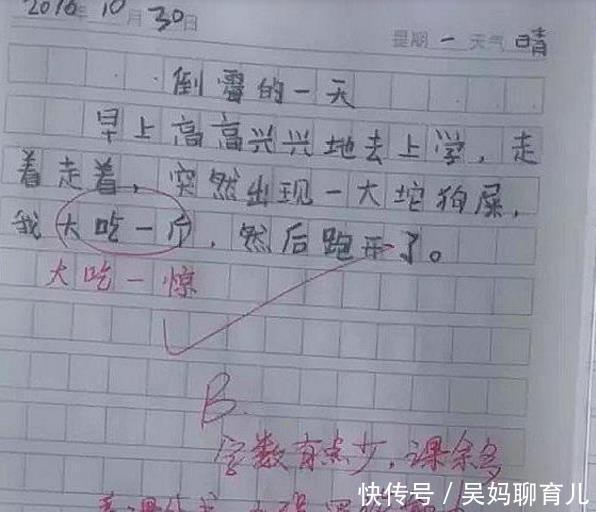 2016年10月30日 星期一 天气晴
倒霉的一天
早上高高兴兴地去上学,走
着走着,突然出现一大坨狗屎,
我大吃一斤,然后跑开了。
大吃一惊
B.
字数有点少,课余多
快传号/吴妈聊育儿